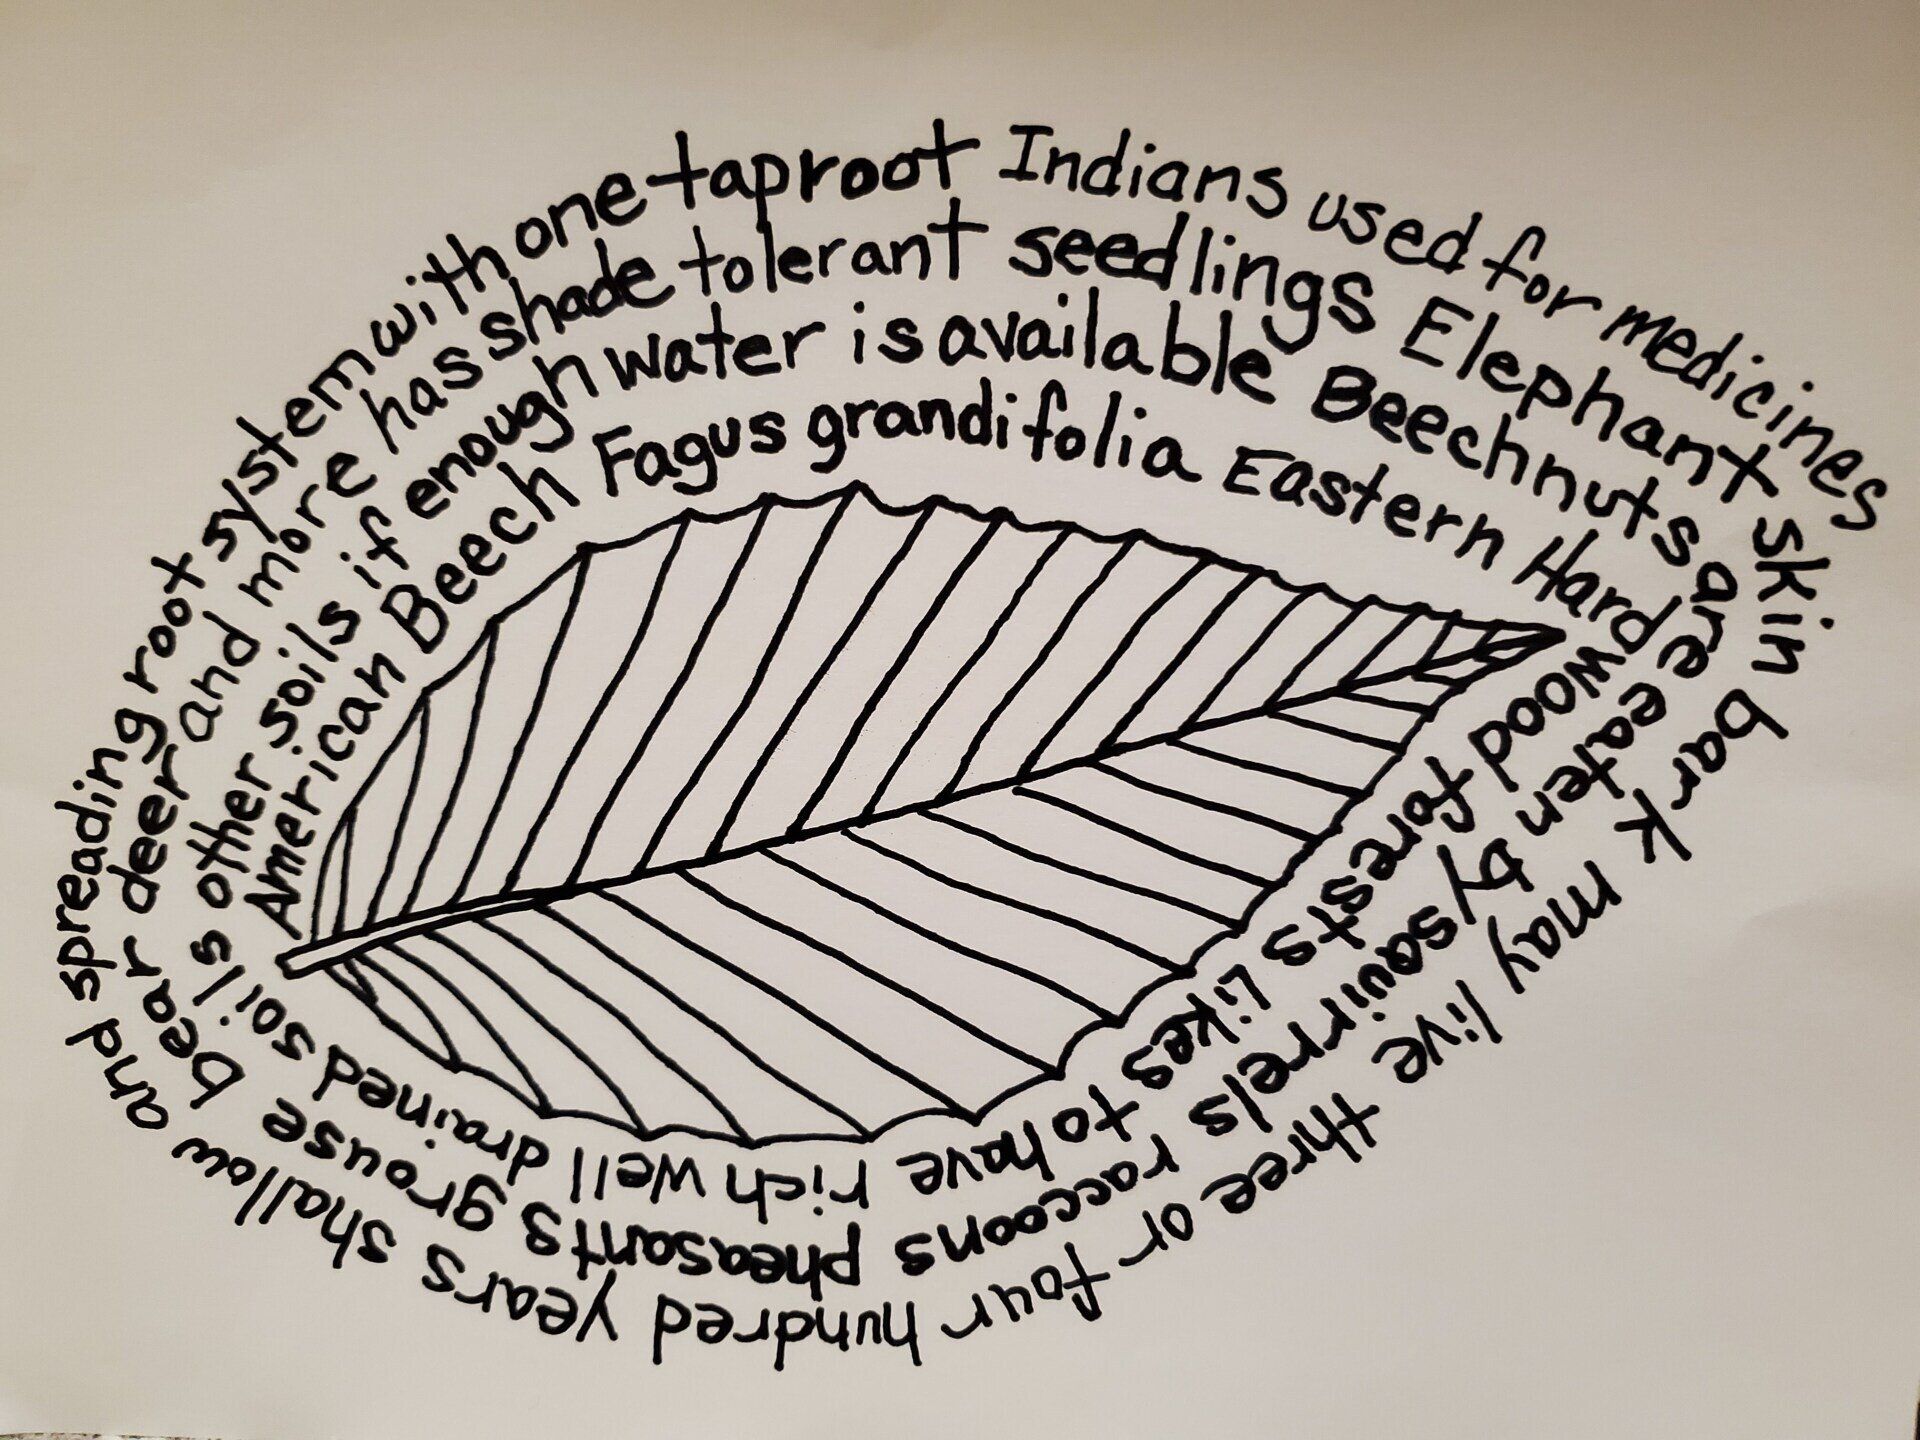 American Beech Fagus grandifolia Eastern Hardwood forests Likes to have rich well drained soils
other soils if enough water is available Beechnuts are eaten by squirrels raccoons pheasants grouse bear deer
and more has shade tolerant seedlings Elephant skin bark may live three or four hundred years shallow and spreading
root system with one taproot Indians used for medicines